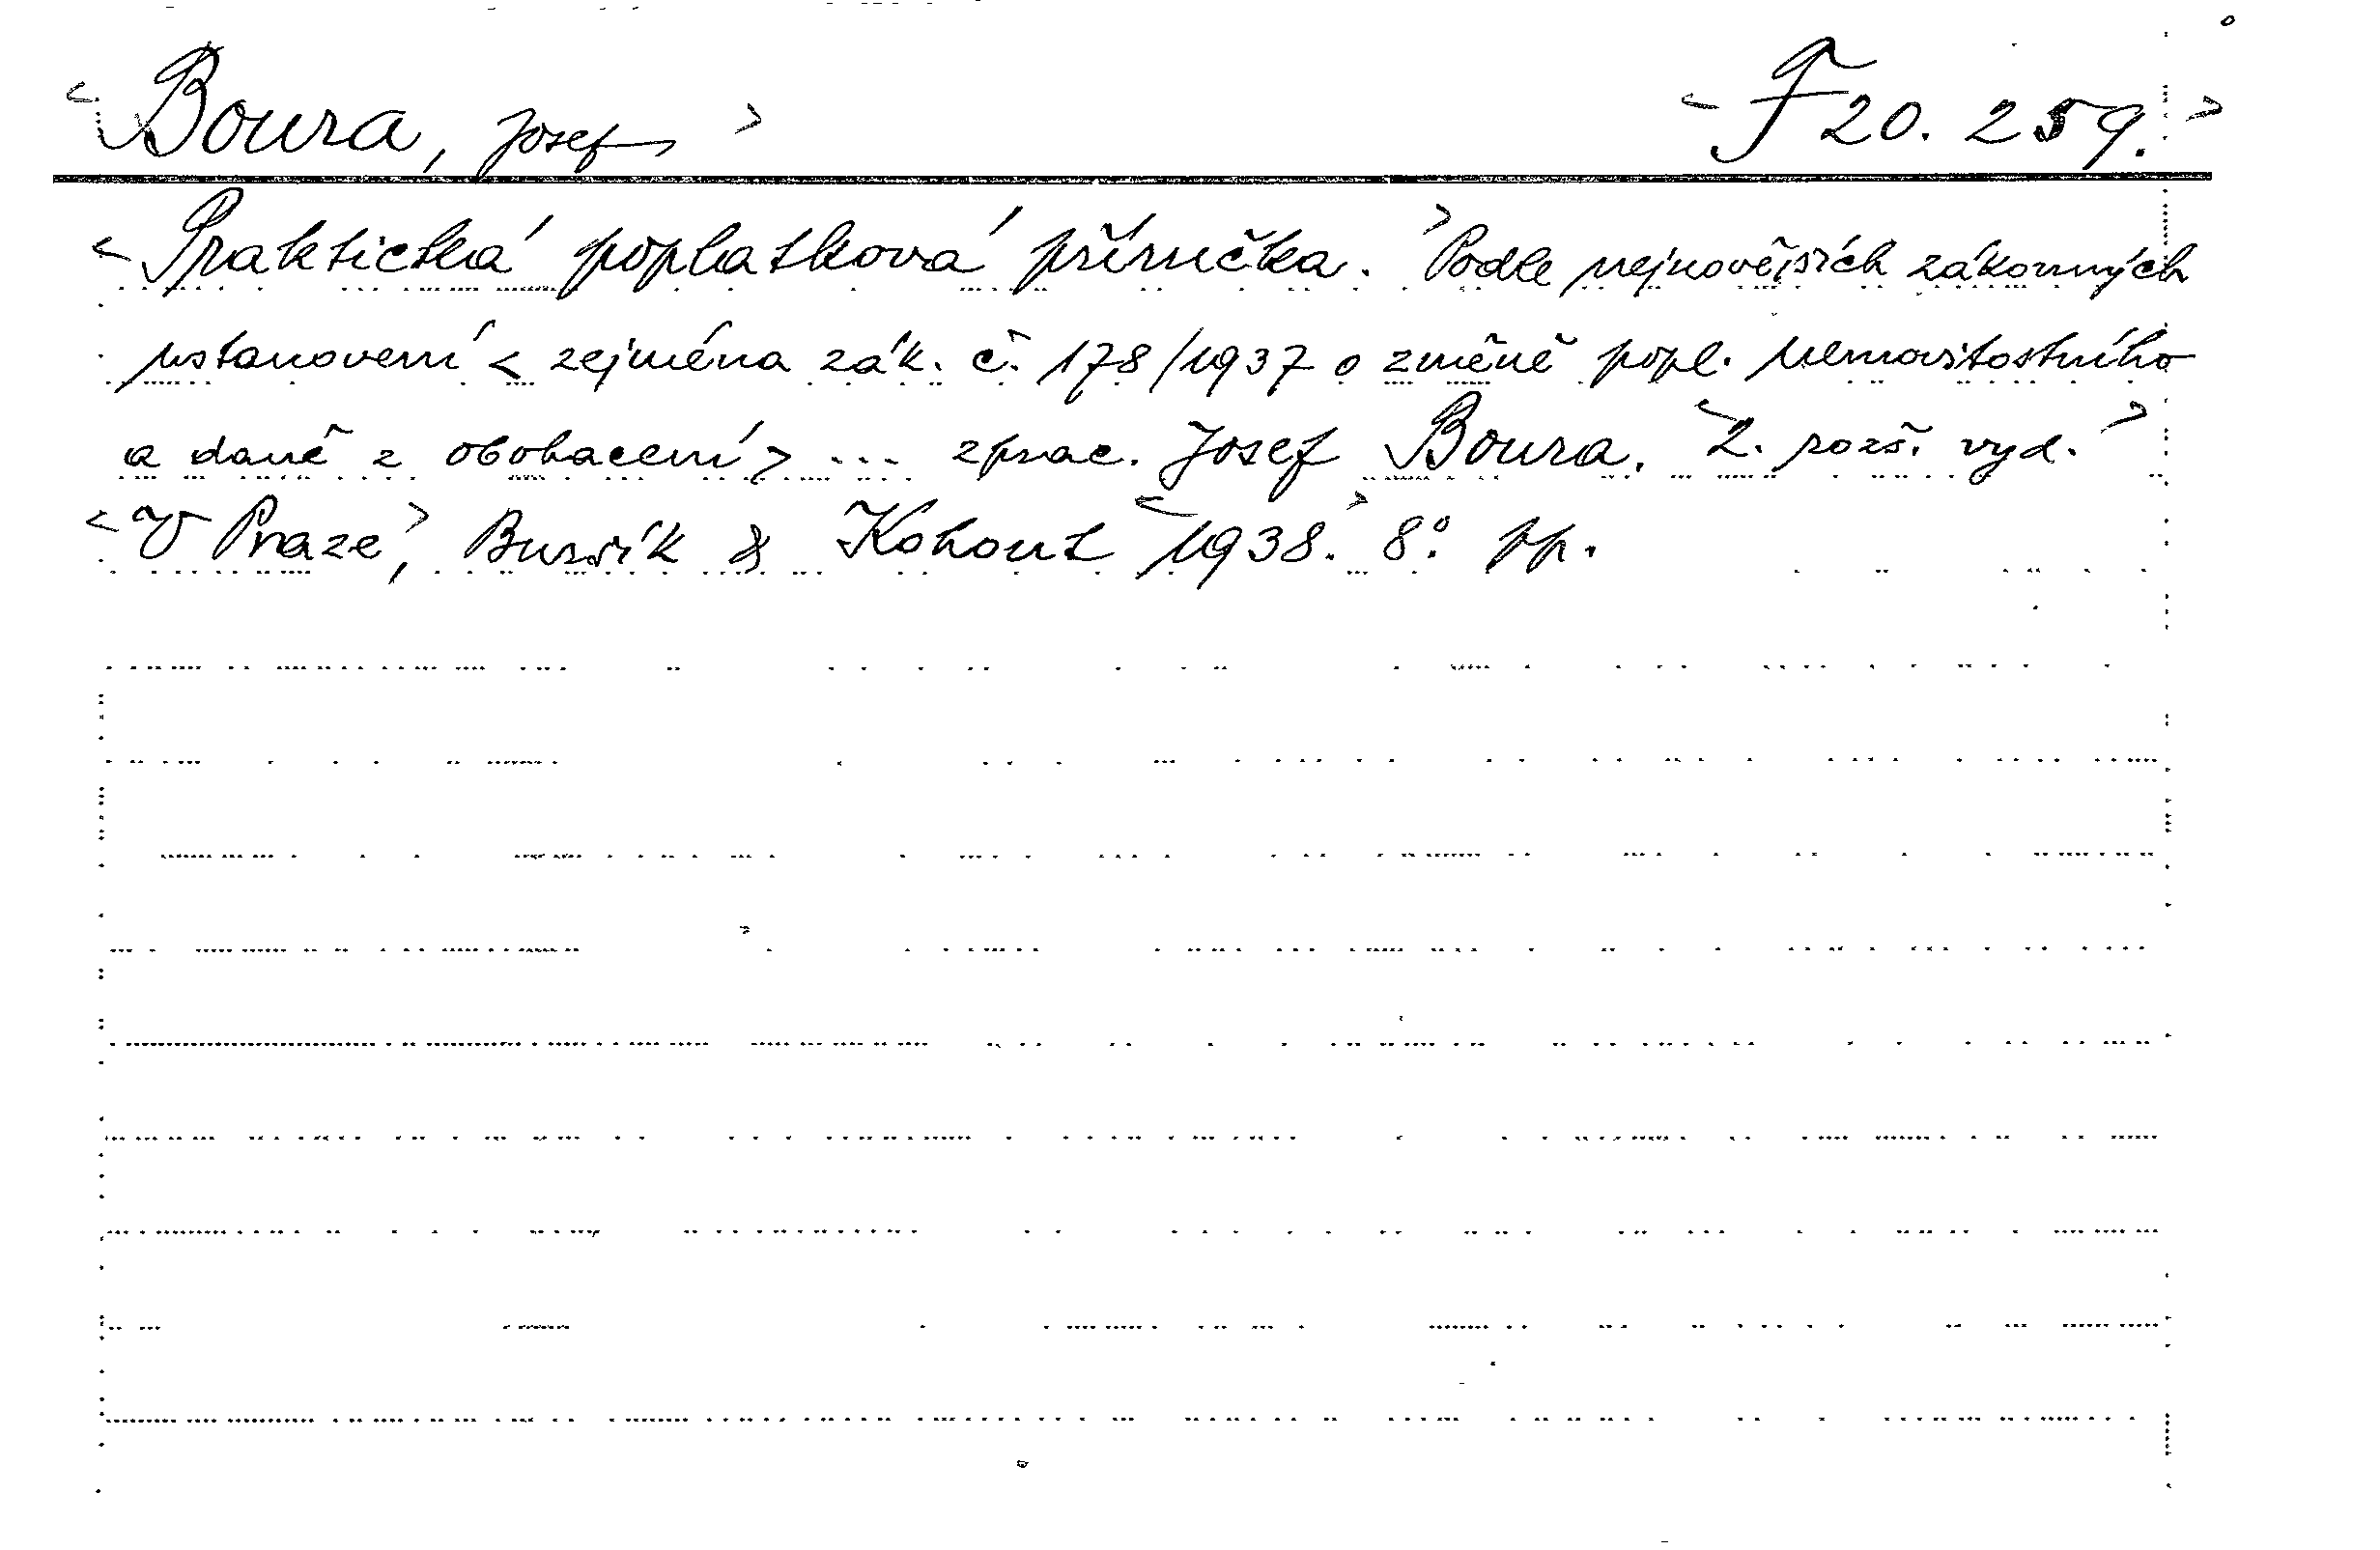 <Boura, Josef> <F 20.259.>
<Praktická poplatková příručka.> Podle nejnovějších zákonných
ustanovení < zejména zák. č. 178/1937 o změně popl. nemovitostního
a daně z obohacení > ... zprac. Josef Boura. <2. rozš. vyd.>
<V Praze,> Bursík & Kohout <1938.> 8°. pp.